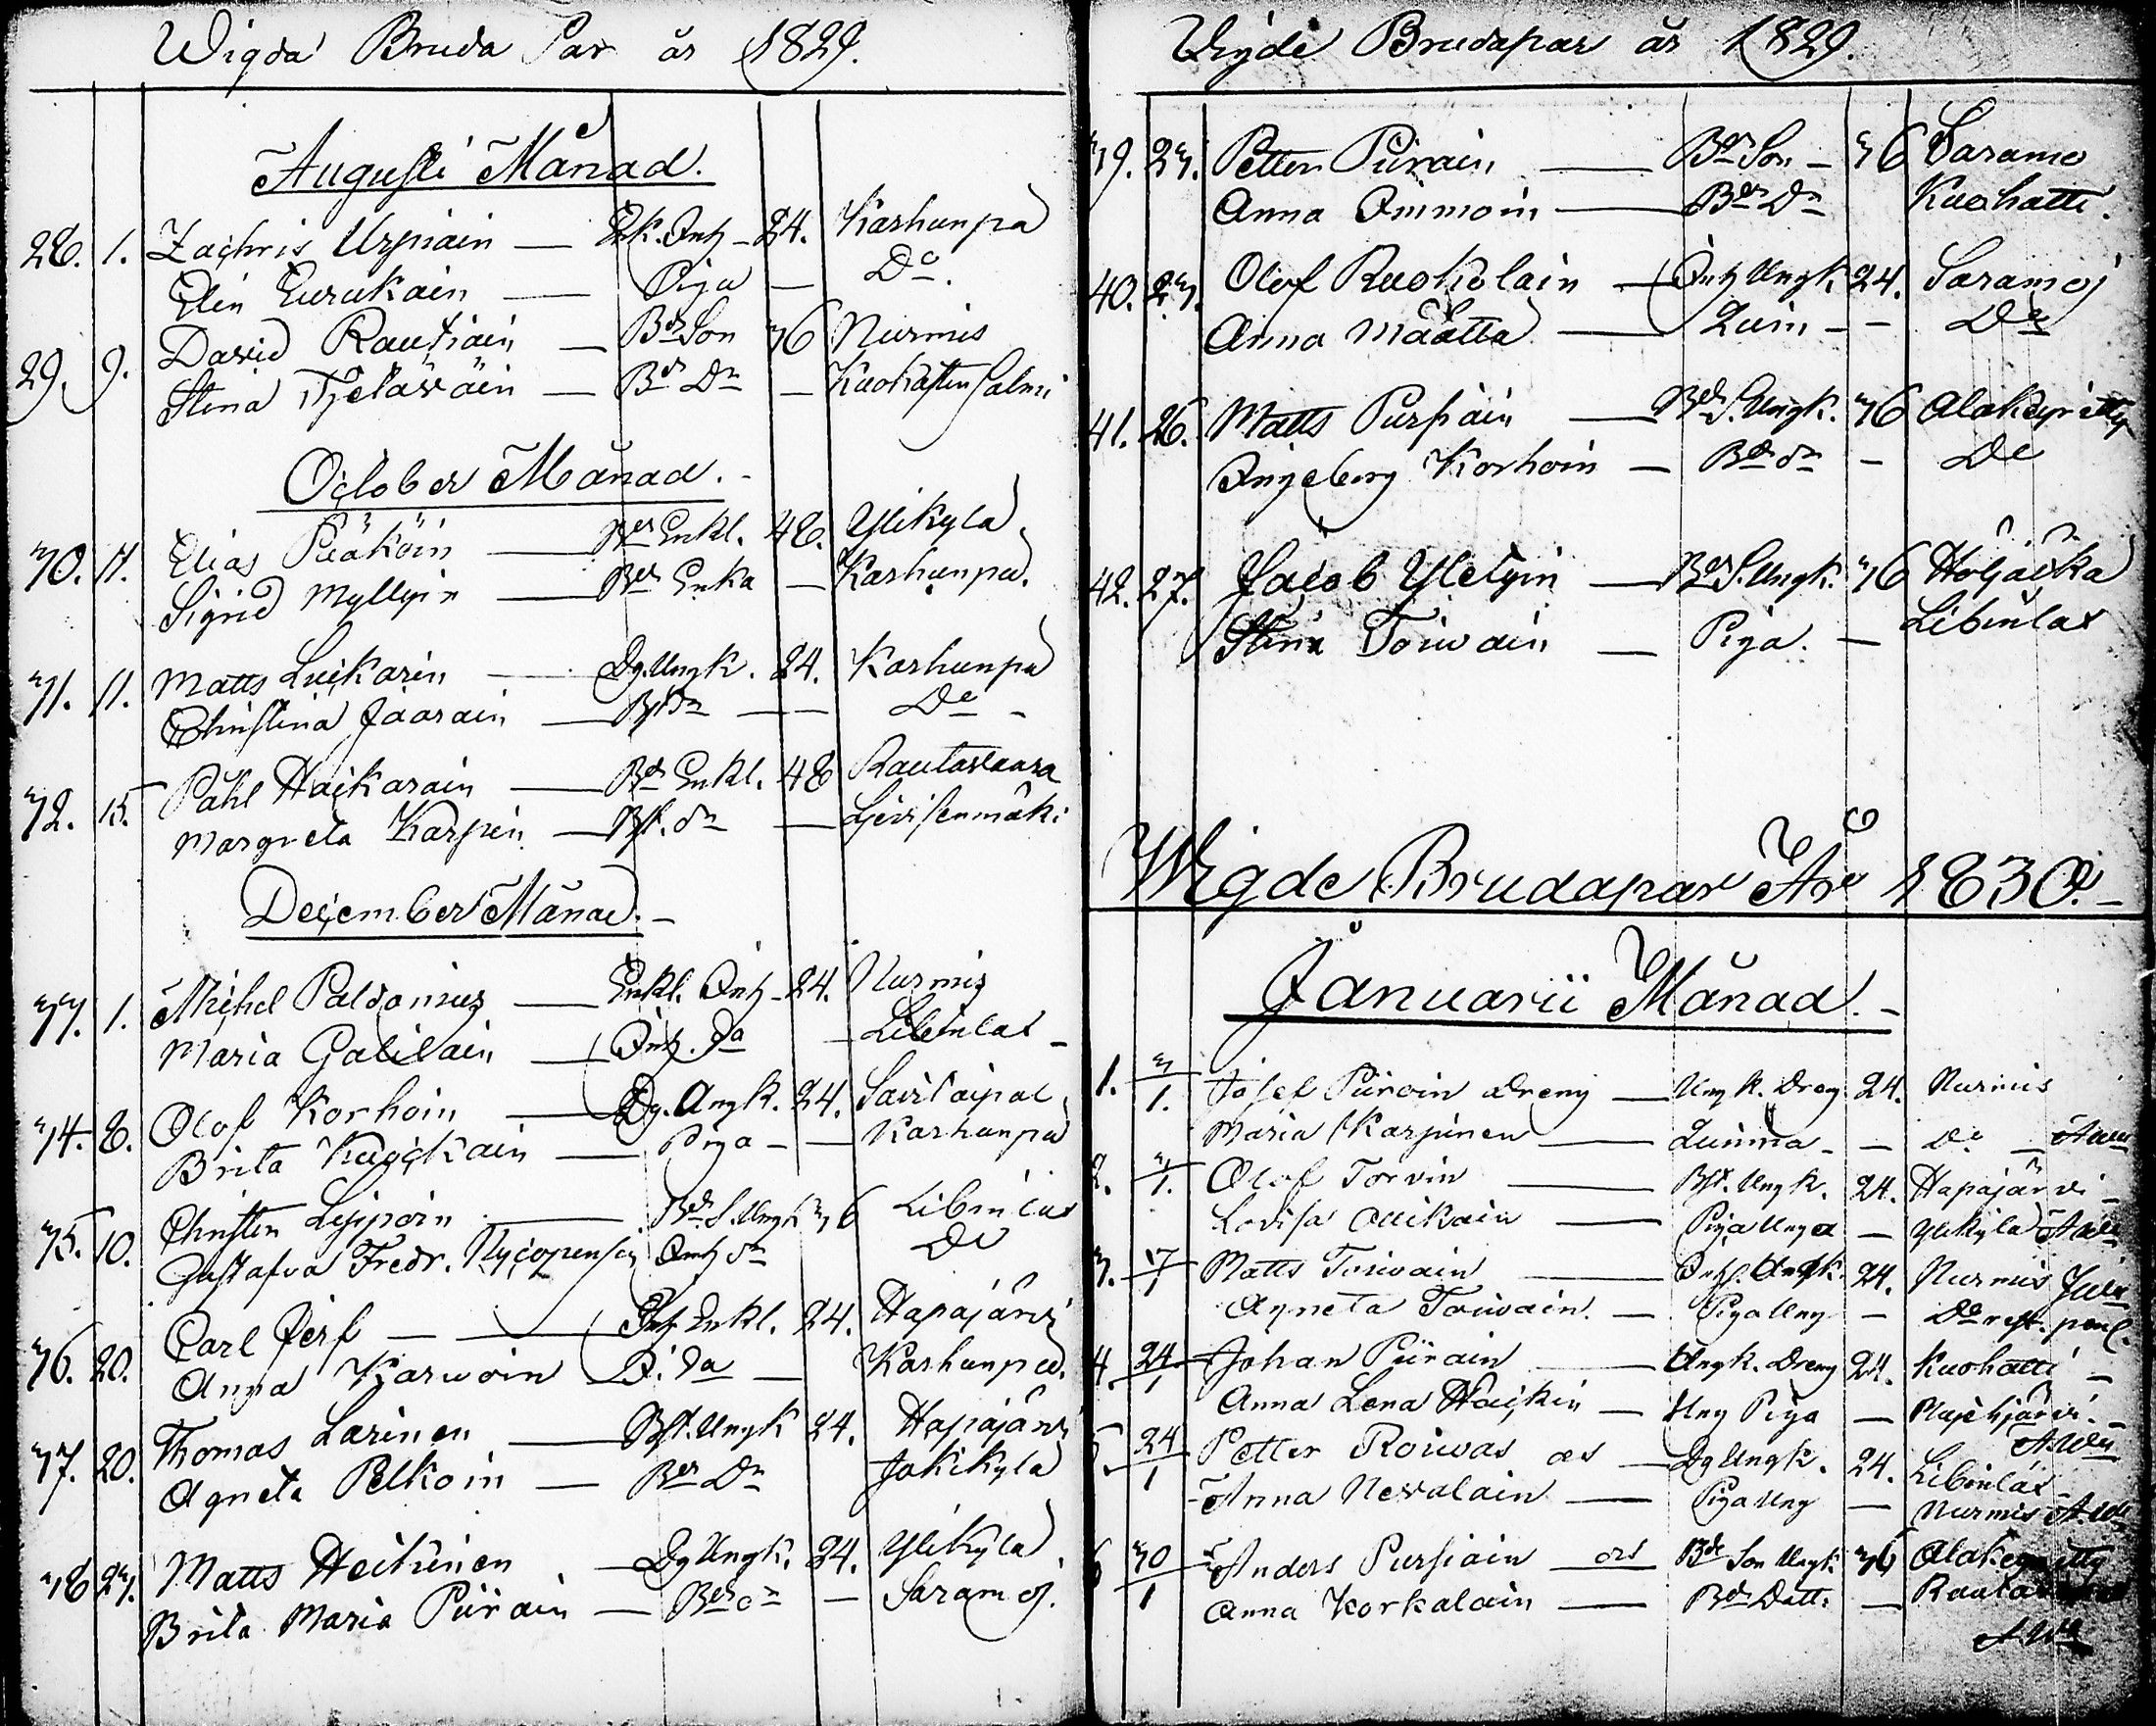 Wigda Bruda Par år 1829.
Augusti Månad.
28. 1. Zachris Urpiain — Enk. Inh. — 24. Karhunpä
Elin Turukain — Piga — Do.
29. 9. David Rautiain — Bdr Son 36 Nurmis
Stina Tjeläväin — Bdr Dr — Kuohattin Salmi
October Månad.
30. 11. Elias Pääköin — Bdr Enkl. 48. Ylikylä
Sigrid Myllyin — Bdr Enka — Karhunpä.
31. 11. Matts Luikarin — Dg. Ungk. 24. Karhunpä
Christina Jaarain — — De
32. 15. Påhl Haikarain — Bdr Enkl. 48 Rautavaara
Margreta Karpin — Bst. dr —
December Månad.
33. 1. Michel Paldanius — Enkl. Inh. — 24. Nurmis
Maria — Inh. — Libinlax
34. 8. Olof Korhoin — Dg. Ungk. 24. Savilaipal
Brita — Piga — Karhunpä
35. 10. Christer Lippoin — Bdr S. Ungk 36 Libinlax
Gustafva Fredr. Nycopensis Inh dr De
36. 20. Carl Jerf — Inh Enkl. 24. Hapajärvi
Anna Karwoin — Karhunpä.
37. 20. Thomas Larinen — Bst. Ungk 24. Hapajärvi
Agneta Pelkoin — Bdr Dr Jokikylä
38 23. Matts Heikinen — Dg Ungk. 24. Ylikylä
Brita Maria Piirain — Bdr dr — Saramoj.
Wigde Brudapar år 1829.
39. 23. Petter Piirain — Bdr Son — 36 Saramo
Anna Immoin — Bdr Dr Kuohatti.
40. 23. Olof Ruokolain — Inh Ungk 24. Saramoj
Anna Määttä — — De
41. 26. Matts Pursiain — Bdr S. Ungk. 36 Alakeyritty
Ingeborg Korhoin — Bdr dr — De
42. 27. Jacob Yletyin — Bdr S. Ungk. 36 Höljäkkä
Stina Toivain — Piga. — Libinlax
Wigde Brudapar År 1830.
Januarii Månad.
1. 3/1. Josef Piiroin dreng — Ungk. Dreng 24. Nurmis
Maria Karpinen — Quinna — De —
2. 3/1. Olof Torvin — Bst. Ungk. 24. Hapajärvi
Lovisa Ovikain — Piga Unga — Ylikylä
3. 17/1 Matts Toivain — Inh. Ungk. 24. Nurmis
Agneta Toivain. — Piga Ung —
4. 24/1 Johan Piirain — Ungk. Dreng 24. Kuohatti
Anna Lena Haikin — Ung Piga —
5. 24/1 Petter Roivas — Dg Ungk. 24. Libinlax
Anna Nevalain — Piga Ung — Nurmis
6 30/1 Anders Pursiain — Bdr Son Ungk. 36 Alakeyritty
Anna Korkalain — Bdr Dott. —